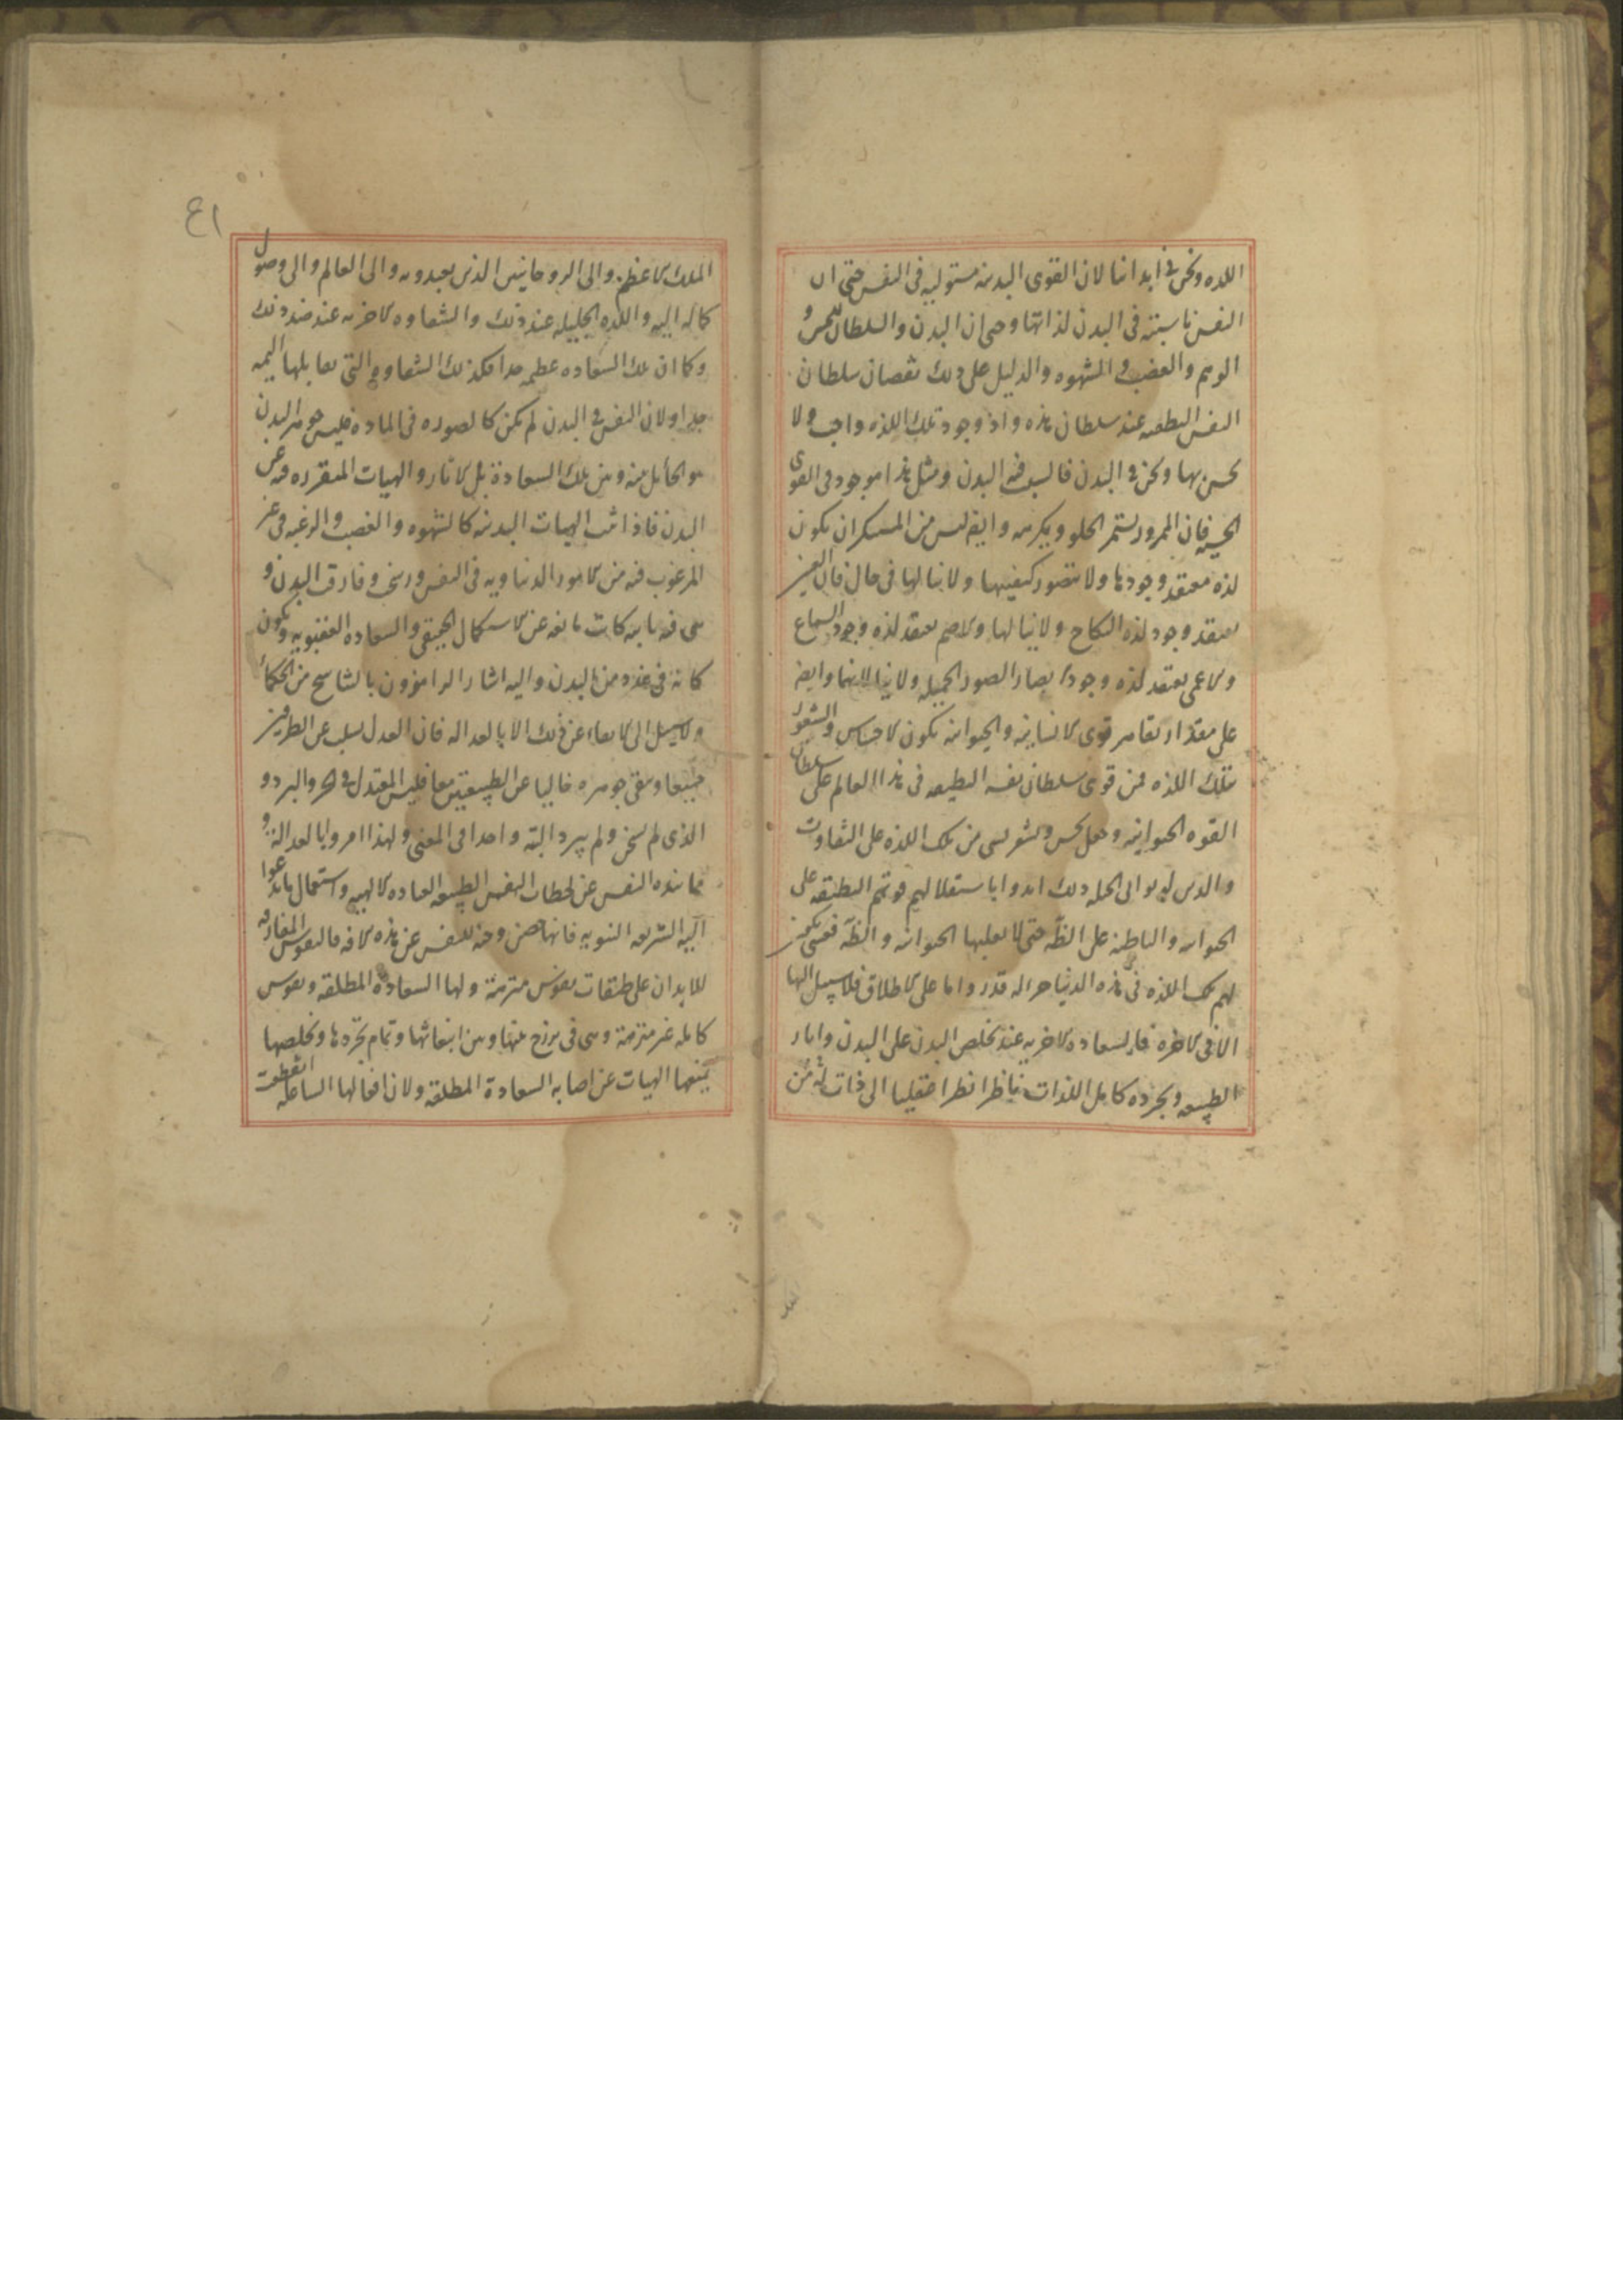 اللذه ونحن فى ابداننا لان القوى البدنيه مستوليه فى النفس حتى ان
النفس ناسيته فى البدن لذاتها وحتى ان البدن والسلطان للحس و
الوهم والغضب والشهوه والدليل على ذلك نقصان سلطان
النفس النطقيه عند سلطان هذه واذ وجود تلك اللذه واجب ولا
نحس بها ونحن فى البدن فالسبب فيه البدن ومثل هذا موجود فى القوى
الحسيه فان الممرور يستمر الحلو ويكرهه وايضا ليس من المستنكر ان يكون
لذه معتقد وجودها ولا تتصور كيفيتها ولا ينالها فى حال فان العنين
يعتقد وجود لذه النكاح ولا ينالها والاصم يعتقد لذه وجود السماع
والاعمى يعتقد لذه وجود ابصار الصور الجميله ولا ينالانها وايضا
على مقدار تقاصر قوى الانسانيه والحيوانيه يكون الاحساس والشعور
بتلك اللذه فمن قوى سلطان نفسه النطقيه فى هذا العالم على سلطان
القوه الحيوانيه وجعل يحس ويشعر بشى من تلك اللذه على التفاوت
والذين ادلوا الى الجمله ذلك ايدوا باستعلا لهم قوتهم النطقيه على
الحيوانيه والباطنه على الظاهره حتى لا تغلبها الحيوانيه والظاهره فعسى يكون
لهم تلك اللذه فى هذه الدنيا قدر واما على الاطلاق فلا سبيل اليها
الا فى الاخره فالسعاده الاخريه عند تخلص البدن على البدن واثار
الطبيعه وتجرده كامل اللذات ناظرا نظرا عقليا الى ذات له من
٤١
الملك الاعظم والى الروحانيين الذين يعبدونه والى العالم والى وصول
كماله اليه واللذه الجليله عند ذلك والشقاوه الاخريه عند ضد ذلك
وكما ان تلك السعاده عظيمه جدا فكذلك الشقاوه التى تقابلها اليمه
جدا ولان النفس فى البدن لم تكن كالصوره فى الماده فليس جوهر البدن
هو الحائل بينه وبين تلك السعادة بل الاثار والهيات المتقرره فيه عن
البدن فاذا ثبت الهيات البدنيه كالشهوه والغضب والرغبه فى غير
المرغوب فيه من الامور الدنياويه فى النفس ورسخ وفارق البدن و
هى فيه ثابته كانت مانعه عن الاستكمال الحقيقى والسعاده العقبويه ويكون
كانه فى عده من البدن واليه اشار الرامزون بالتناسخ من الحكماء
ولا سبيل الى الابقاء عن ذلك الا بالعداله فان العدل يسلب عن الطرفين
جميعا ويبقى جوهره خاليا عن الطبيعتين معا فليس المعتدل فى الحر والبرد و
الذى لم يسخن ولم يبرد البته واحدا فى المعنى ولهذا امروا بالعدالة و
مما ينزه النفس عن لحظات النفس الطبيعه العباده الالهيه واستعمال ما يدعوا
اليه الشريعه النبويه فانها حصن وجنه للنفس عن هذه الافه فالنفوس المفارقه
للابدان على طبقات نفوس متنزهة ولها السعادة المطلقه ونفوس
كامله غير متنزهة وهى فى برزخ بينها وبين انبعاثها وتمام تجردها وتخلصها
يمنعها الهيات عن اصابه السعادة المطلقه ولان افعالها الشاغله انقطعت